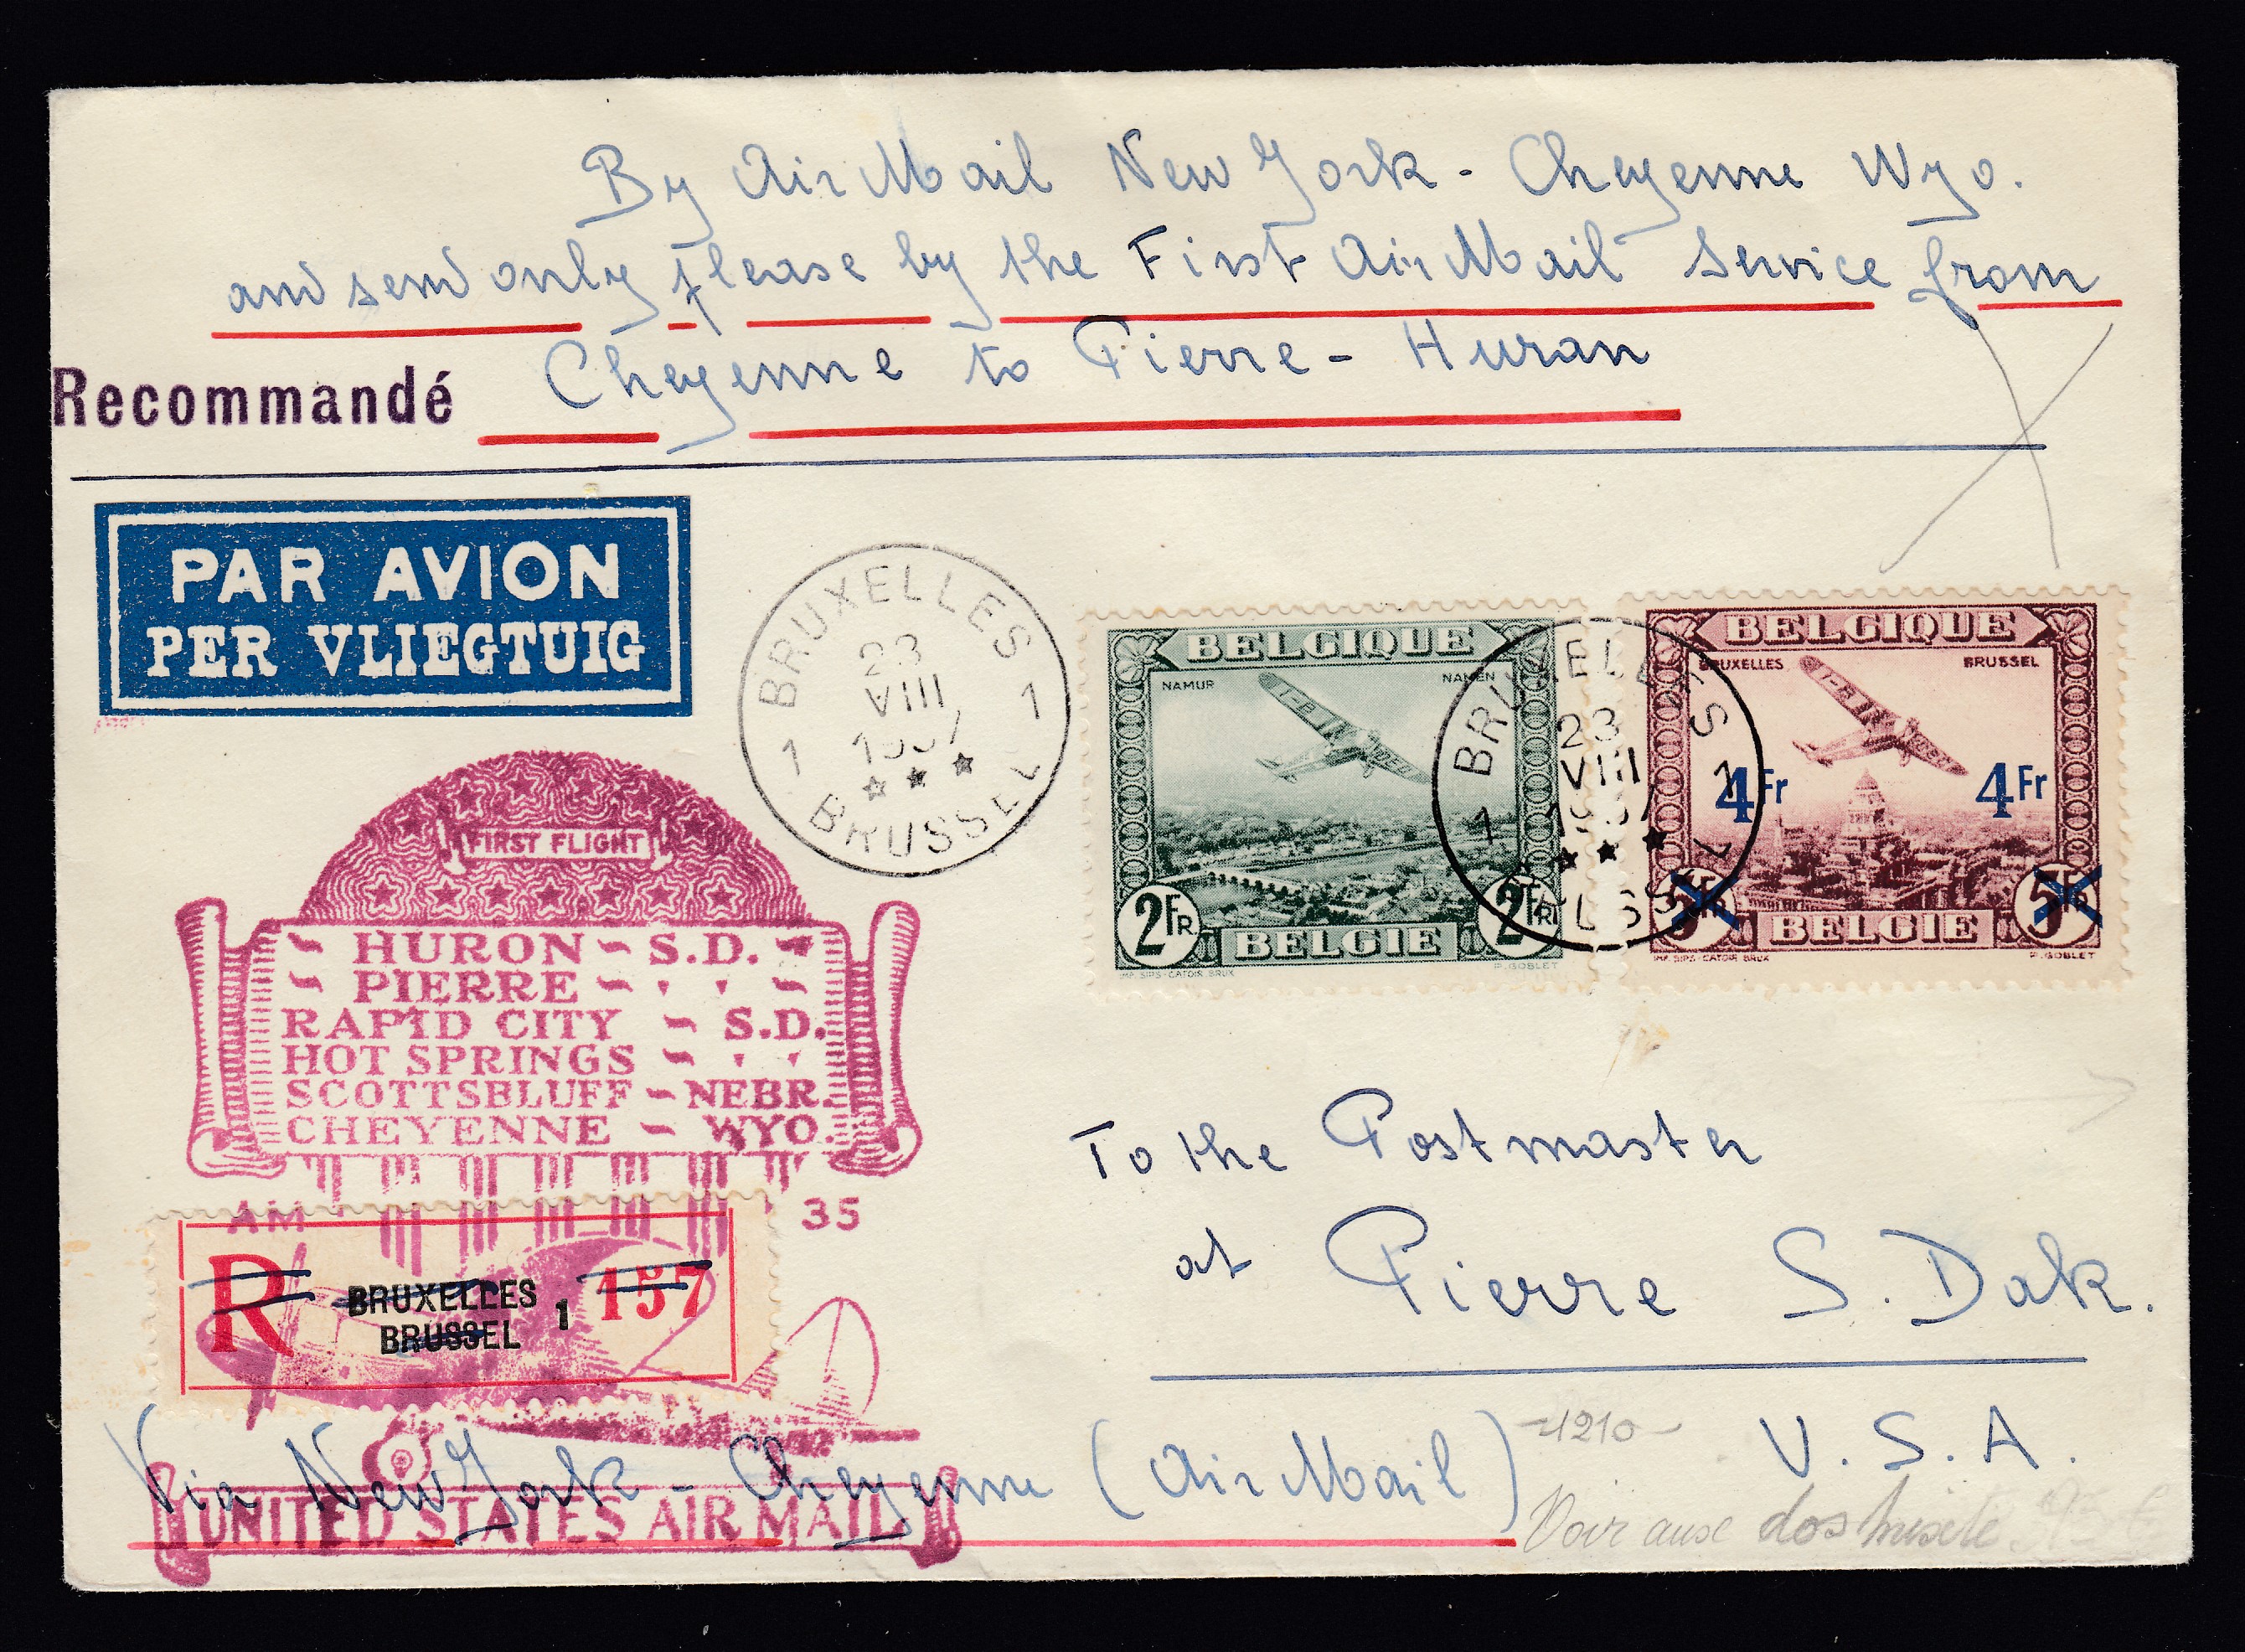 By Air Mail New York - Cheyenne Wyo.
and send only please by the First Air Mail Service from
Cheyenne to Pierre - Huran
Recommandé
PAR AVION
PER VLIEGTUIG
BRUXELLES
1 1
23
VIII
1937
BRUSSEL
BELGIQUE
NAMUR NAMEN
2FR 2FR
BELGIE
IMP. SIPS-CATOIR BRUX P. GOBLET
BELGIQUE
BRUXELLES BRUSSEL
4Fr 4Fr
5Fr 5Fr
BELGIE
IMP. SIPS-CATOIR BRUX P. GOBLET
BRUXELLES
1 1
23
VIII
1937
FIRST FLIGHT
HURON ~ S.D.
PIERRE ~ " "
RAPID CITY ~ S.D.
HOT SPRINGS ~ " "
SCOTTSBLUFF ~ NEBR.
CHEYENNE ~ WYO.
AM 35
R BRUXELLES 1 157
BRUSSEL
To the Postmaster
at Pierre S. Dak.
U.S.A.
Via New York - Cheyenne (Air Mail)
UNITED STATES AIR MAIL
-1210-
Voir aux dos